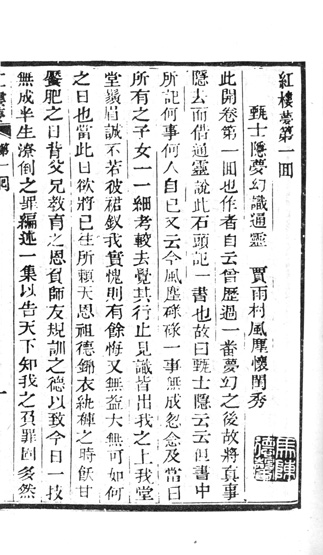 紅樓夢第一囬
甄士隱夢幻識通靈　賈雨村風塵懷閨秀
此開卷第一囬也作者自云曾歷過一番夢幻之後故將真事
隱去而借通靈說此石頭記一書也故曰甄士隱云云但書中
所記何事何人自己又云今風塵碌碌一事無成忽念及當日
所有之子女一一細考較去覺其行止見識皆出我之上我堂
堂鬚眉誠不若彼裙釵我實愧則有餘悔又無益大無可如何
之日也當此日欲將已往所賴天恩祖德錦衣紈褲之時飫甘
饜肥之日背父兄教育之恩負師友規訓之德以致今日一技
無成半生潦倒之罪編述一集以告天下知我之負罪固多然
第一囬